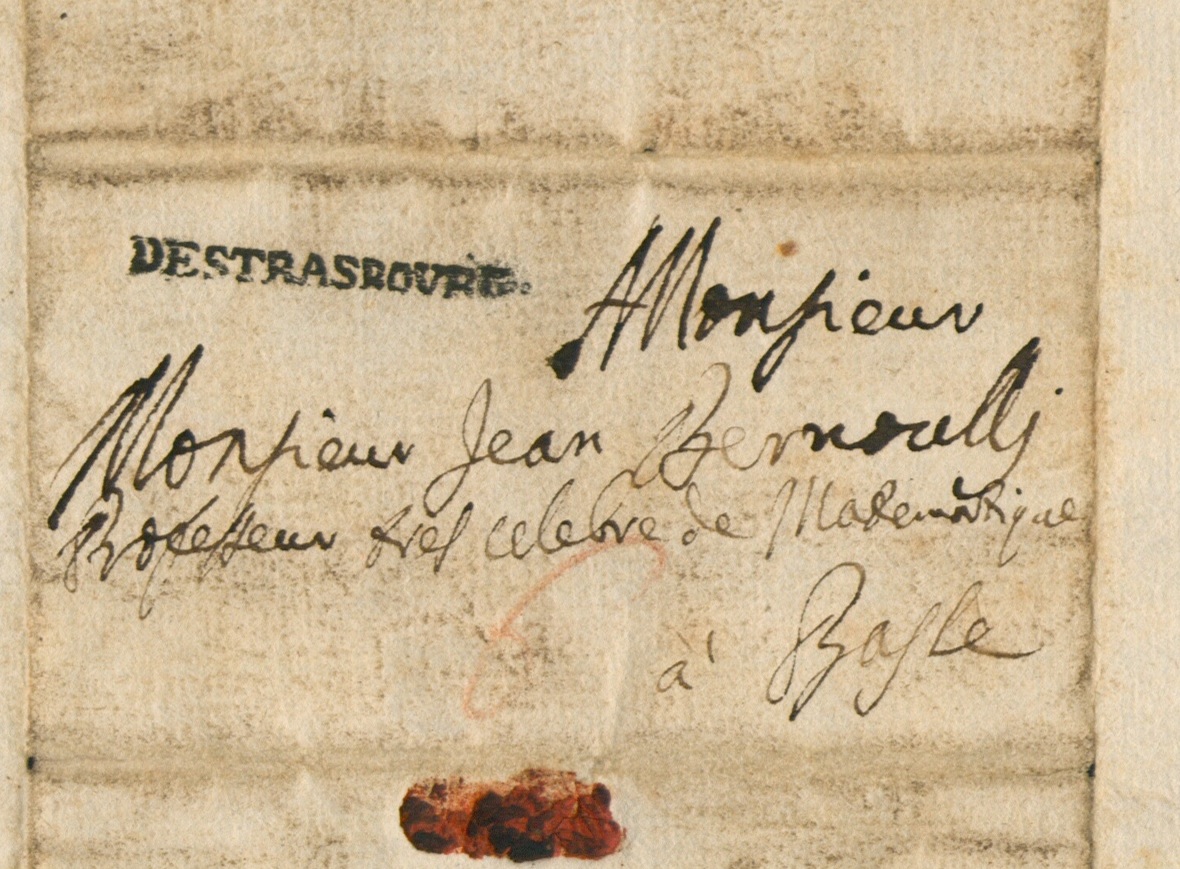 DESTRASBOURG.
A Monsieur
Monsieur Jean Bernoullj
Professeur tres celebre de Mathematique
à Basle